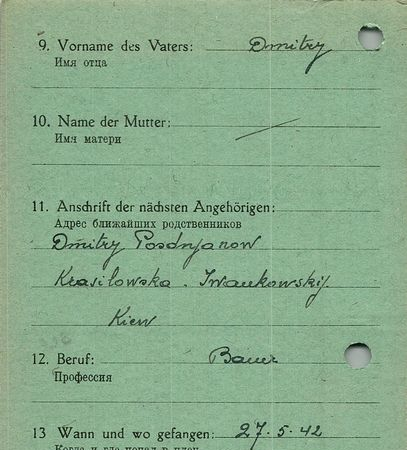 9. Vorname des Vaters: Dmitry
Имя отца
10. Name der Mutter: —
Имя матери
11. Anschrift der nächsten Angehörigen:
Адрес ближайших родственников
Dmitry Posdnjanow
Krasilowska. Iwankowskij
Kiew
12. Beruf: Bauer
Профессия
13 Wann und wo gefangen: 27.5.42
Когда и где попал в плен